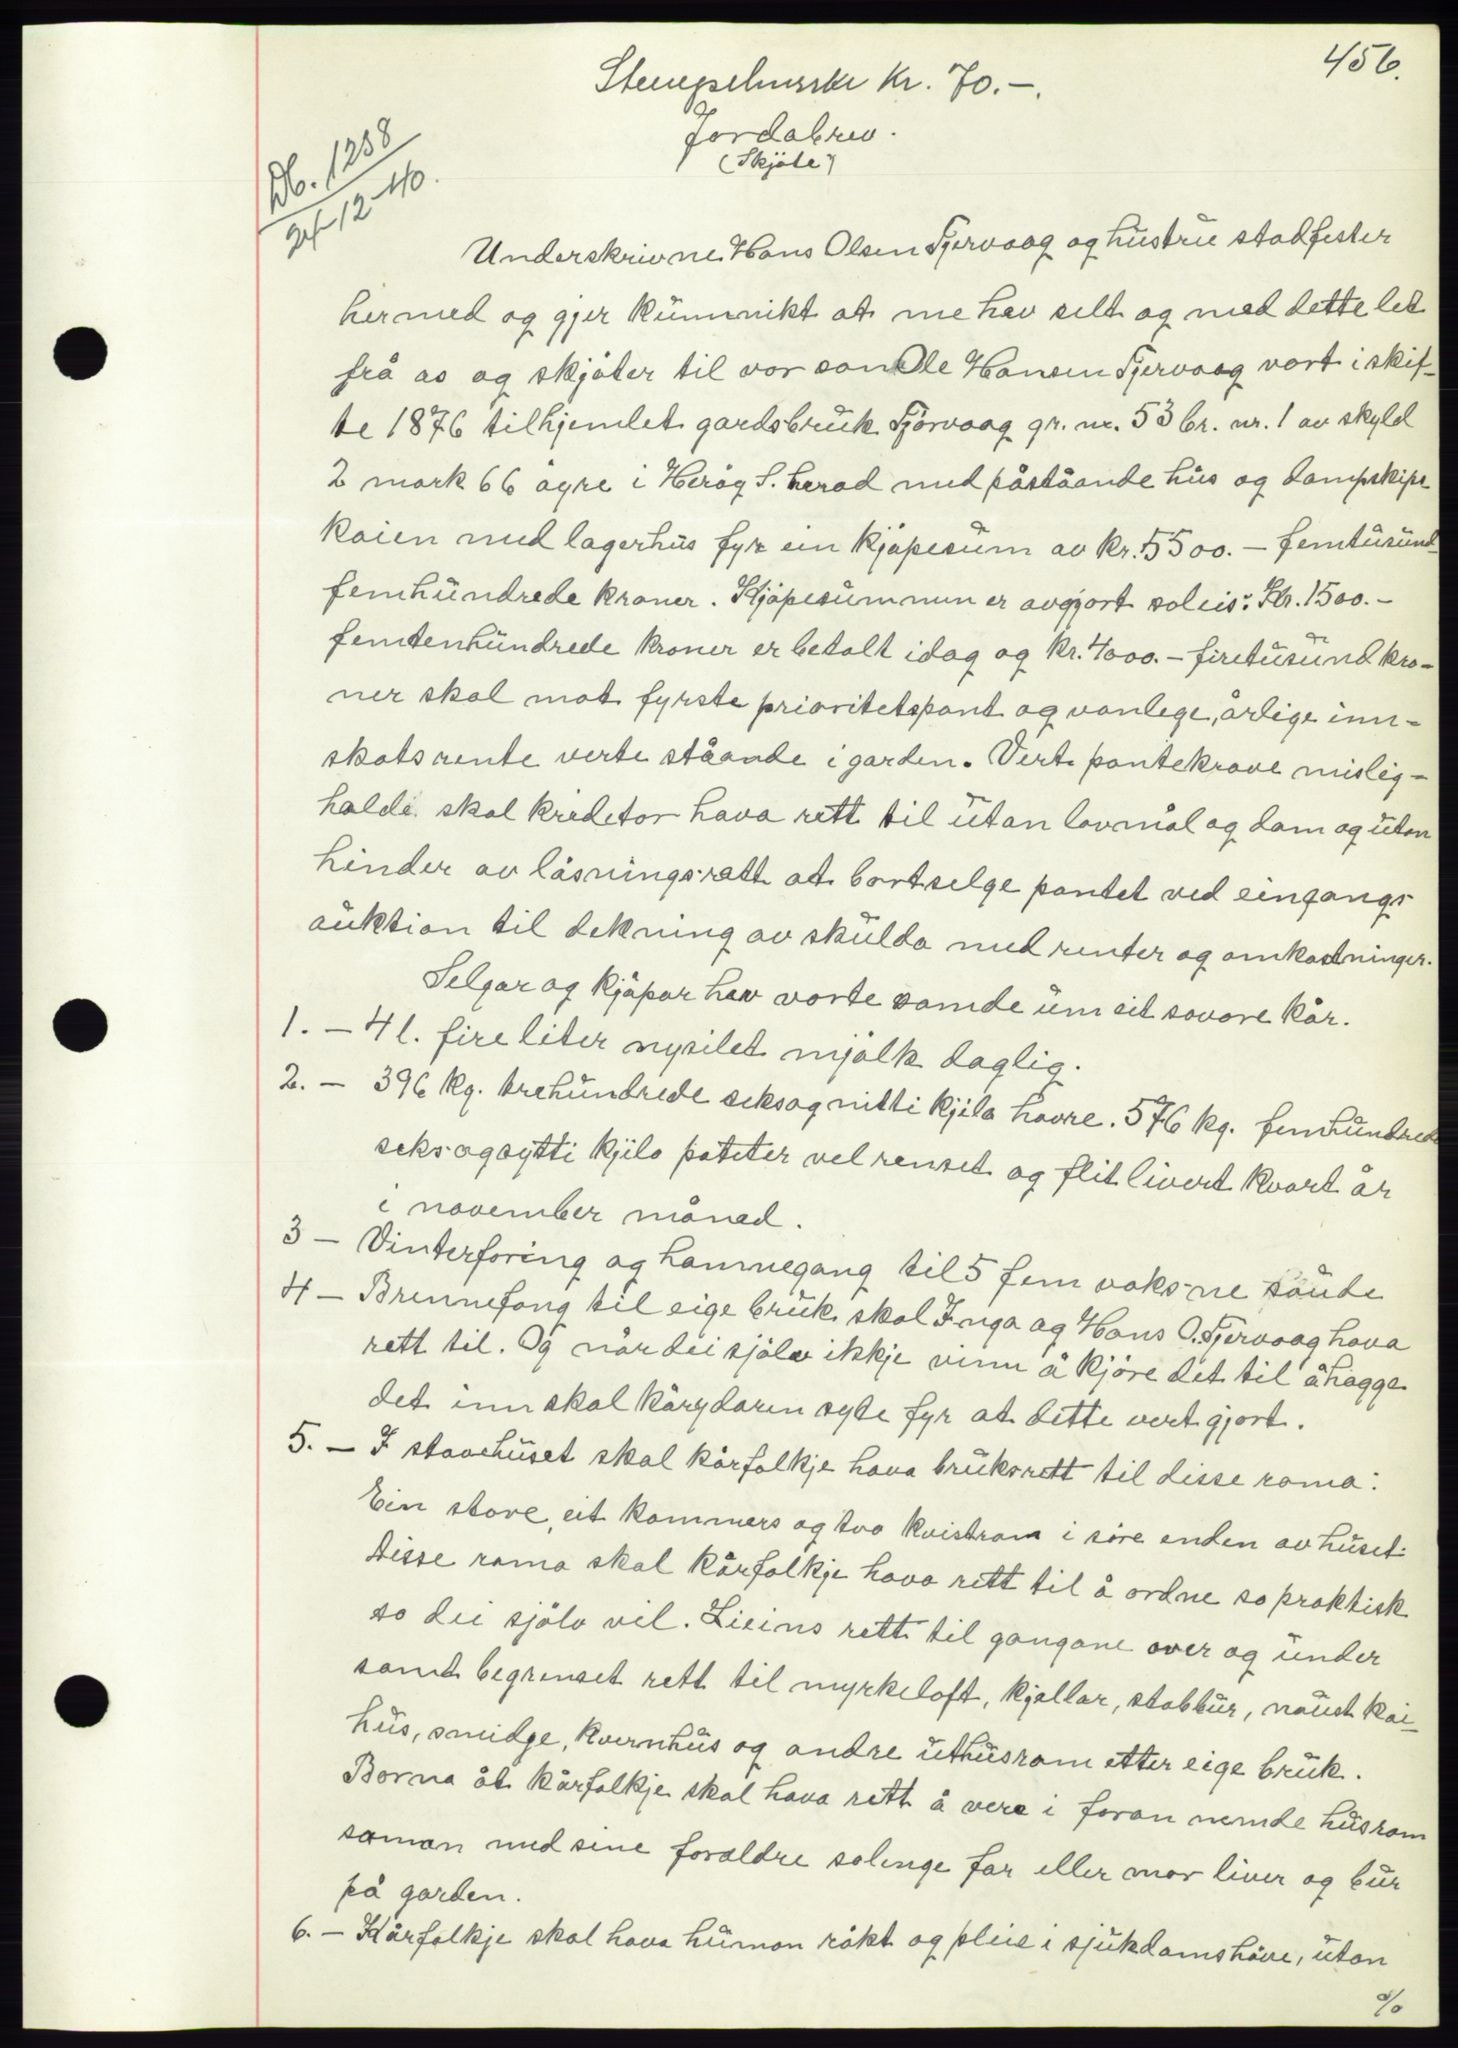 456.
Stempelmerke kr. 70.-.
Jordabrev.
(Skjøte)
Db. 1288
24-12-40.
Underskrivne Hans Olsen Tjervaag og hustrue stadfester
hermed og gjer kunnikt at me hev selt og med dette let
frå os og skjøter til vor son Ole Hansen Tjervaag vort i skif-
te 1876 tilhjemlet gardsbruk Tjørvaag gr. nr. 53 br. nr. 1 av skyld
2 mark 66 øyre i Herøy S. herad med påståande hus og dampskips-
kaien med lagerhus fyr ein kjøpesum av kr. 5500.- femtusund-
femhundrede kroner. Kjøpesummen er avgjort soleis: Kr. 1500.-
femtenhundrede kroner er betalt idag og kr. 4000.- firetusund kro-
ner skal mot fyrste prioritetspant og vanlege, årlige inn-
skotsrente verte ståande i garden. Vert pantekrave mislig-
halde skal kreditor hava rett til utan lovmål og dom og utan
hinder av låsningsrett at bortselge pantet ved eingangs
auktion til dekning av skulda med renter og omkostninger.
Selgar og kjøpar hev vorte samde um eit sovore kår.
1. - 4 l. fire liter nysilet mjølk daglig.
2. - 396 kg. trehundrede seksognitti kjilo havre. 576 kg. femhundrede
seksogsytti kjilo poteter vel renset og flit livert kvart år
i november måned.
3 - Vinterforing og hamnegang til 5 fem voksne saude
4 - Brennefang til eige bruk skal Inga og Hans O. Tjervaag hava
rett til. Og når dei sjølv ikkje vinn å kjøre det til å hogge
det inn skal kårydaren syte fyr at dette vert gjort.
5. - I stovehuset skal kårfolkje hava bruksrett til disse roma:
Ein stove, eit kammers og tvo kvistrom i søre enden av huset.
Disse roma skal kårfolkje hava rett til å ordne so praktisk
so dei sjølv vil. Lieins rett til gangane over og under
samt begrenset rett til myrkeloft, kjellar, stabbur, naust kai-
hus, smidge, kvernhus og andre uthusrom etter eige bruk.
Borna åt kårfolkje skal hava rett å vere i foran nemde husrom
saman med sine foreldre solenge far eller mor liver og bur
på garden.
6. - Kårfolkje skal hava human røkt og pleie i sjukdomshøve, utan
%